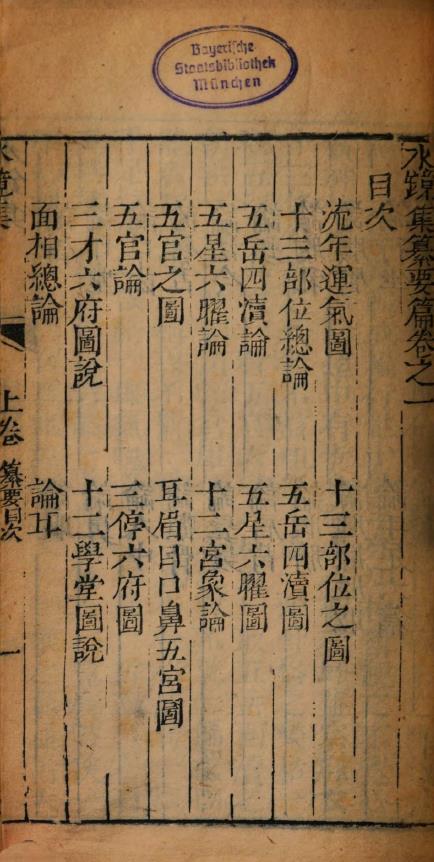 Bayerische
Staatsbibliothek
München
水鏡集纂要篇卷之一
目次
流年運氣圖
十三部位之圖
十三部位總論
五岳四瀆圖
五岳四瀆論
五星六曜圖
五星六曜論
十二宮象論
五官之圖
耳眉目口鼻五宮圖
五官論
三停六府圖
三才六府圖說
十二學堂圖說
面相總論
論耳
水鏡集
上卷
纂要目次
一